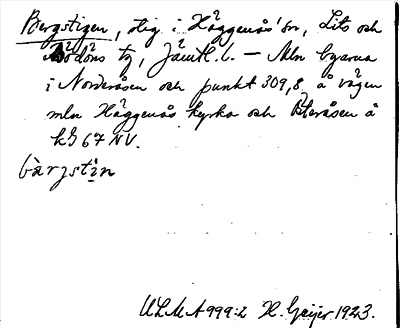 Bergstigen, stig i Häggenås' sn, Lits och
Rödöns tg, Jämtl. l. — Mln byarna
i Norderåsen och punkt 309,8 å vägen
mln Häggenås kyrka och Storåsen å
kG 67 NV.
bàrʒstìn
ULMA 999:2 H. Geijer 1923.